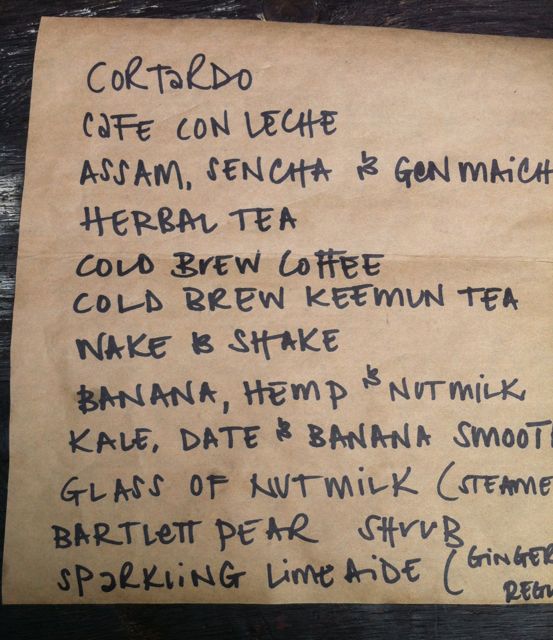 CORTARDO
CAFE CON LECHE
ASSAM, SENCHA & GENMAICH
HERBAL TEA
COLD BREW COFFEE
COLD BREW KEEMUN TEA
WAKE & SHAKE
BANANA, HEMP & NUTMILK
KALE, DATE & BANANA SMOOT
GLASS OF NUTMILK (STEAME
BARTLETT PEAR SHRUB
SPARKLING LIMEAIDE (GINGER
REGU